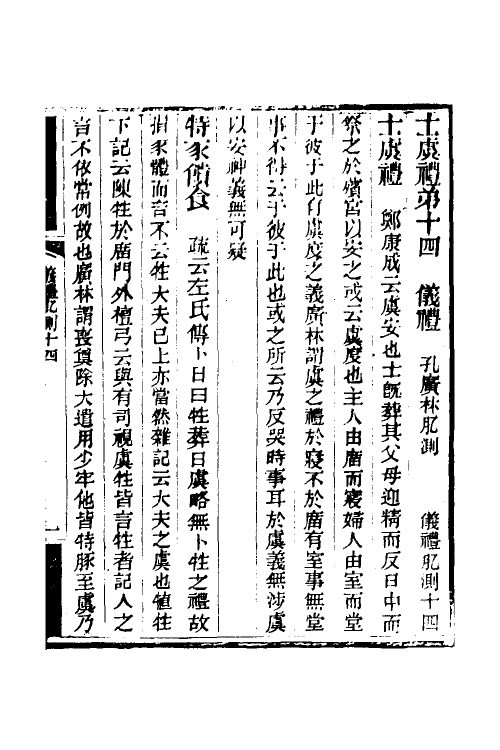 士虞禮弟十四　儀禮　孔廣林肊測　儀禮肊測十四
士虞禮　鄭康成云虞安也士旣葬其父母迎精而反日中而
祭之於殯宮以安之或云虞度也主人由庿而寢婦人由室而堂
于彼于此有虞度之義廣林謂虞之禮於寢不於庿有室事無堂
事不得云于彼于此也或之所云乃反哭時事耳於虞義無涉虞
以安神義無可疑
特豕饋食　疏云左氏傳卜日曰牲葬日虞略無卜牲之禮故
指豕體而言不云牲大夫已上亦當然雜記云大夫之虞也犆牲
下記云陳牲於庿門外檀弓云與有司視虞牲皆言牲者記人之
言不依常例故也廣林謂喪奠除大遣用少牢他皆特豚至虞乃
儀禮肊測十四